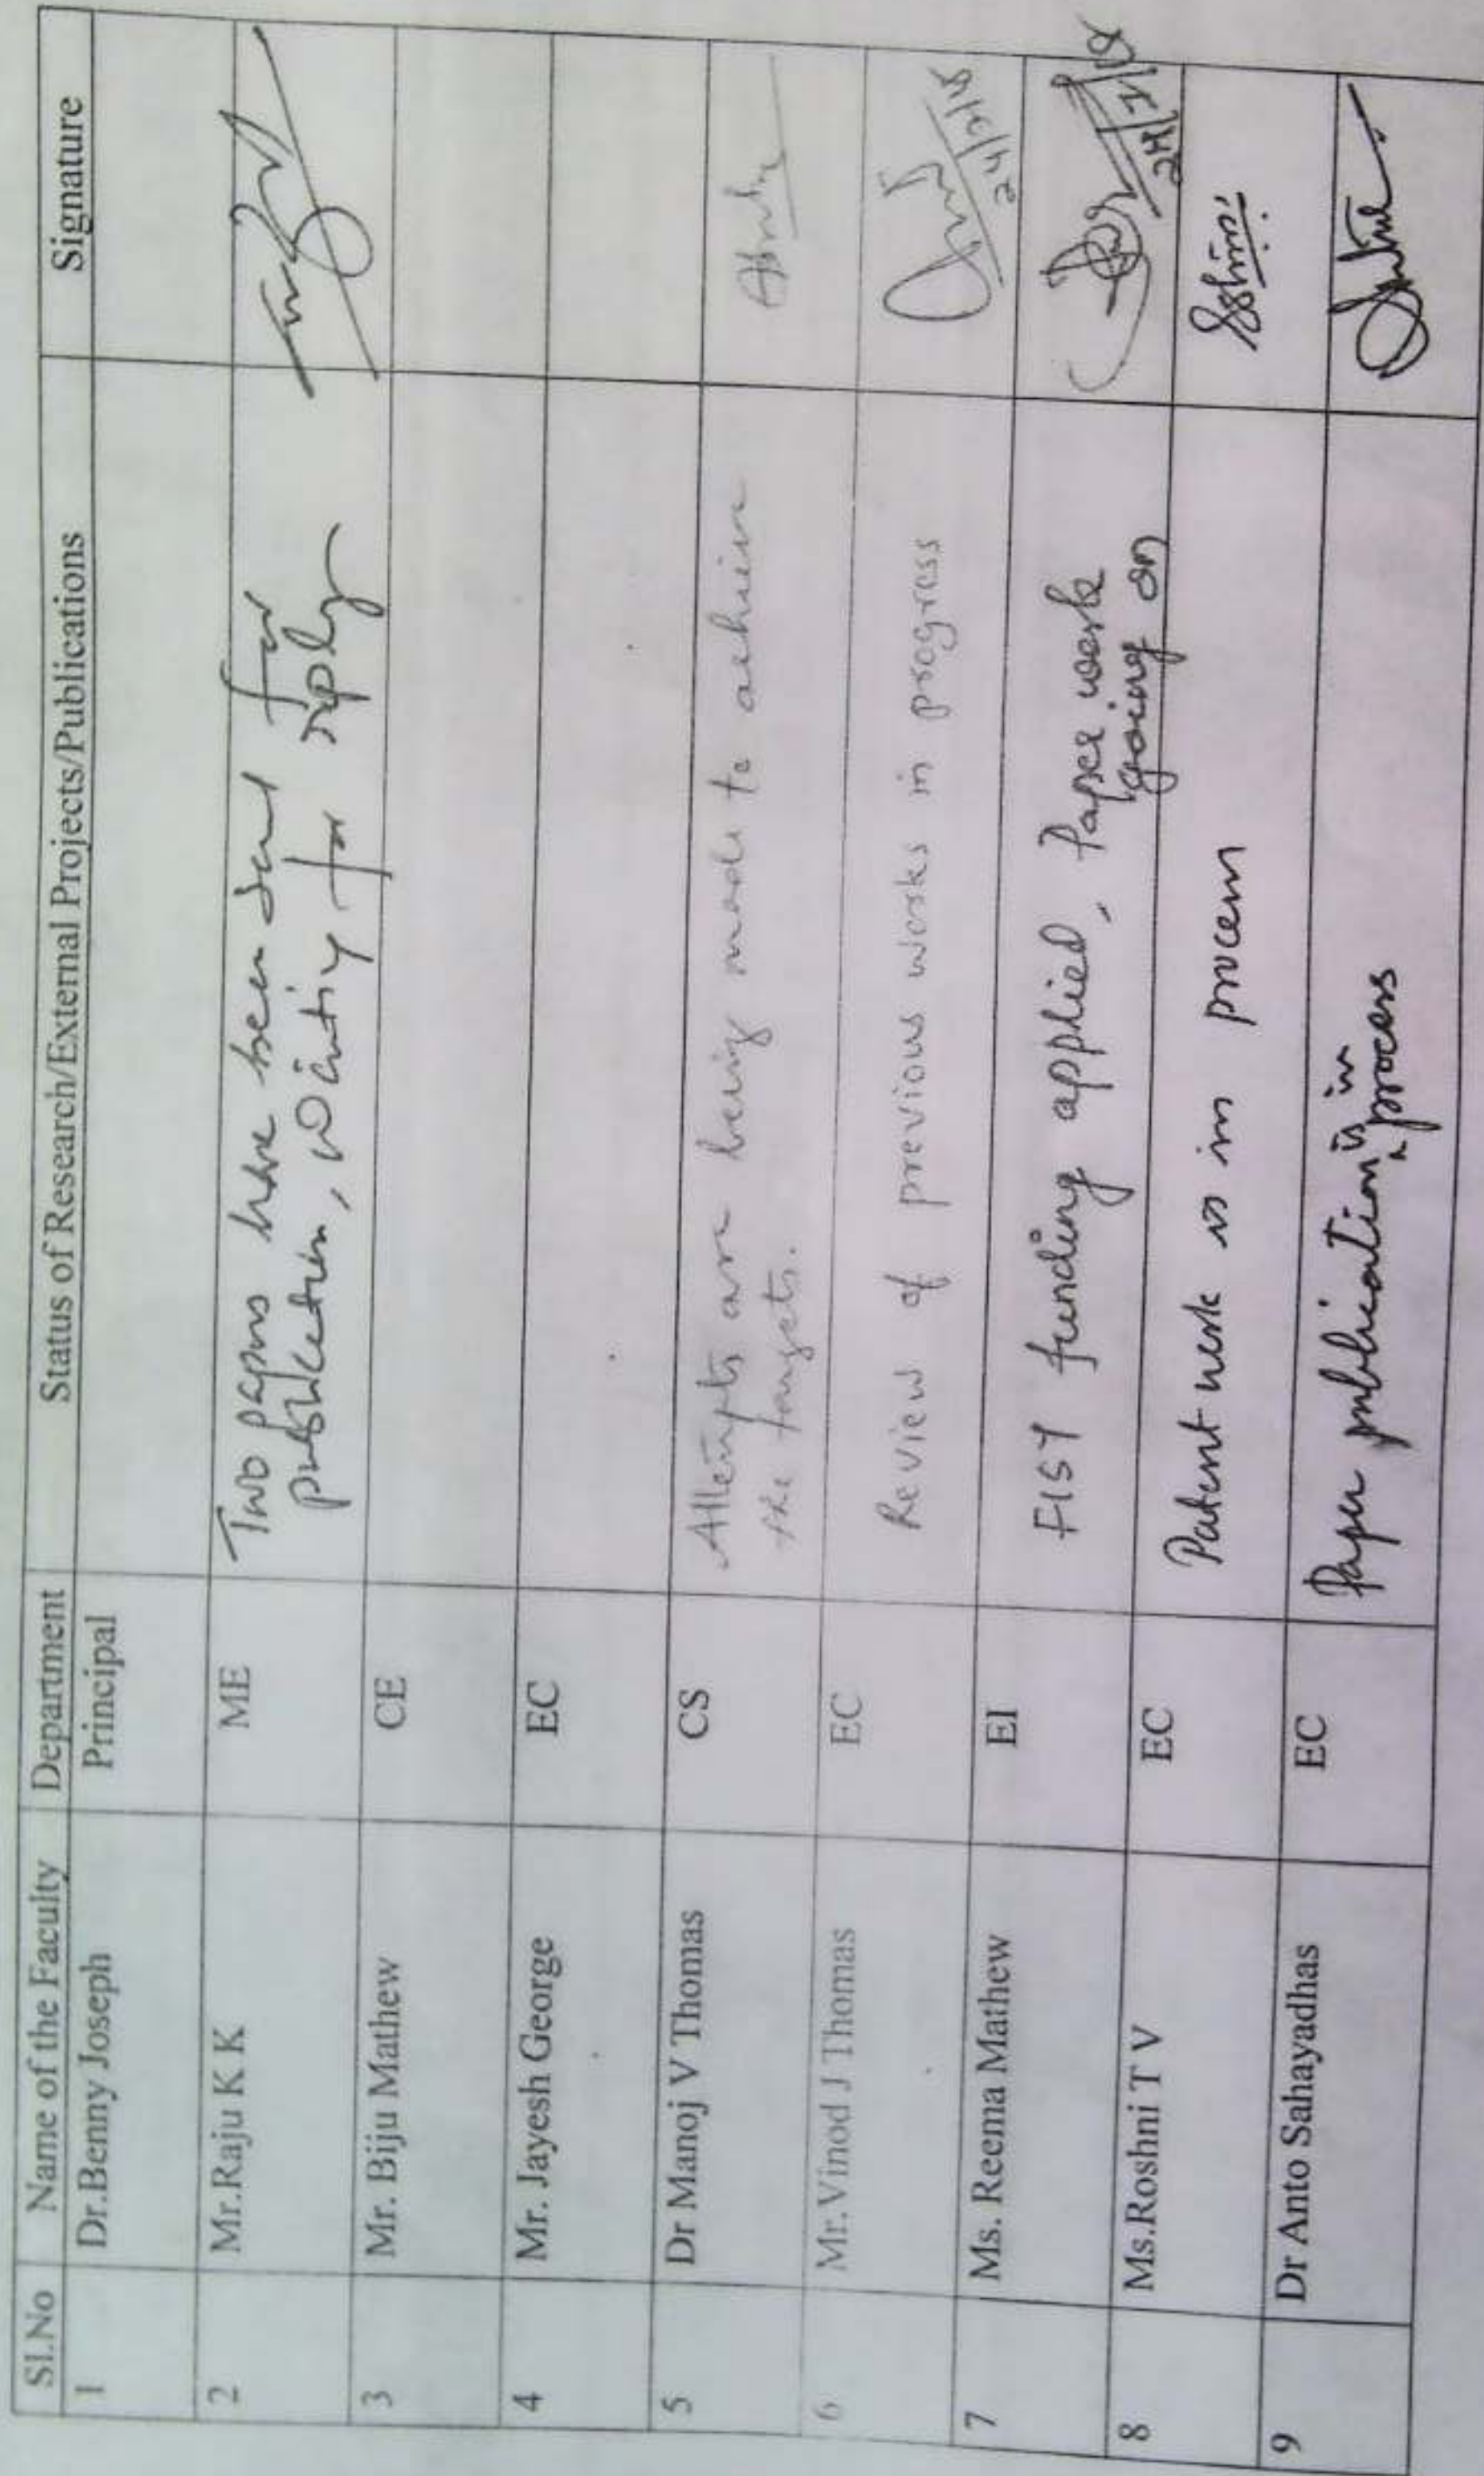 Sl.No Name of the Faculty Department Status of Research/External Projects/Publications Signature
1 Dr.Benny Joseph Principal
2 Mr.Raju K K ME Two papers have been sent for
publication, waiting for reply
3 Mr. Biju Mathew CE
4 Mr. Jayesh George EC
5 Dr Manoj V Thomas CS Attempts are being made to achieve
the targets.
6 Mr.Vinod J Thomas EC Review of previous works in progress
24/9/18
7 Ms. Reema Mathew EI FIST funding applied, Paper work
going on
8 Ms.Roshni T V EC Patent work is in process
9 Dr Anto Sahayadhas EC Paper publication is in
process